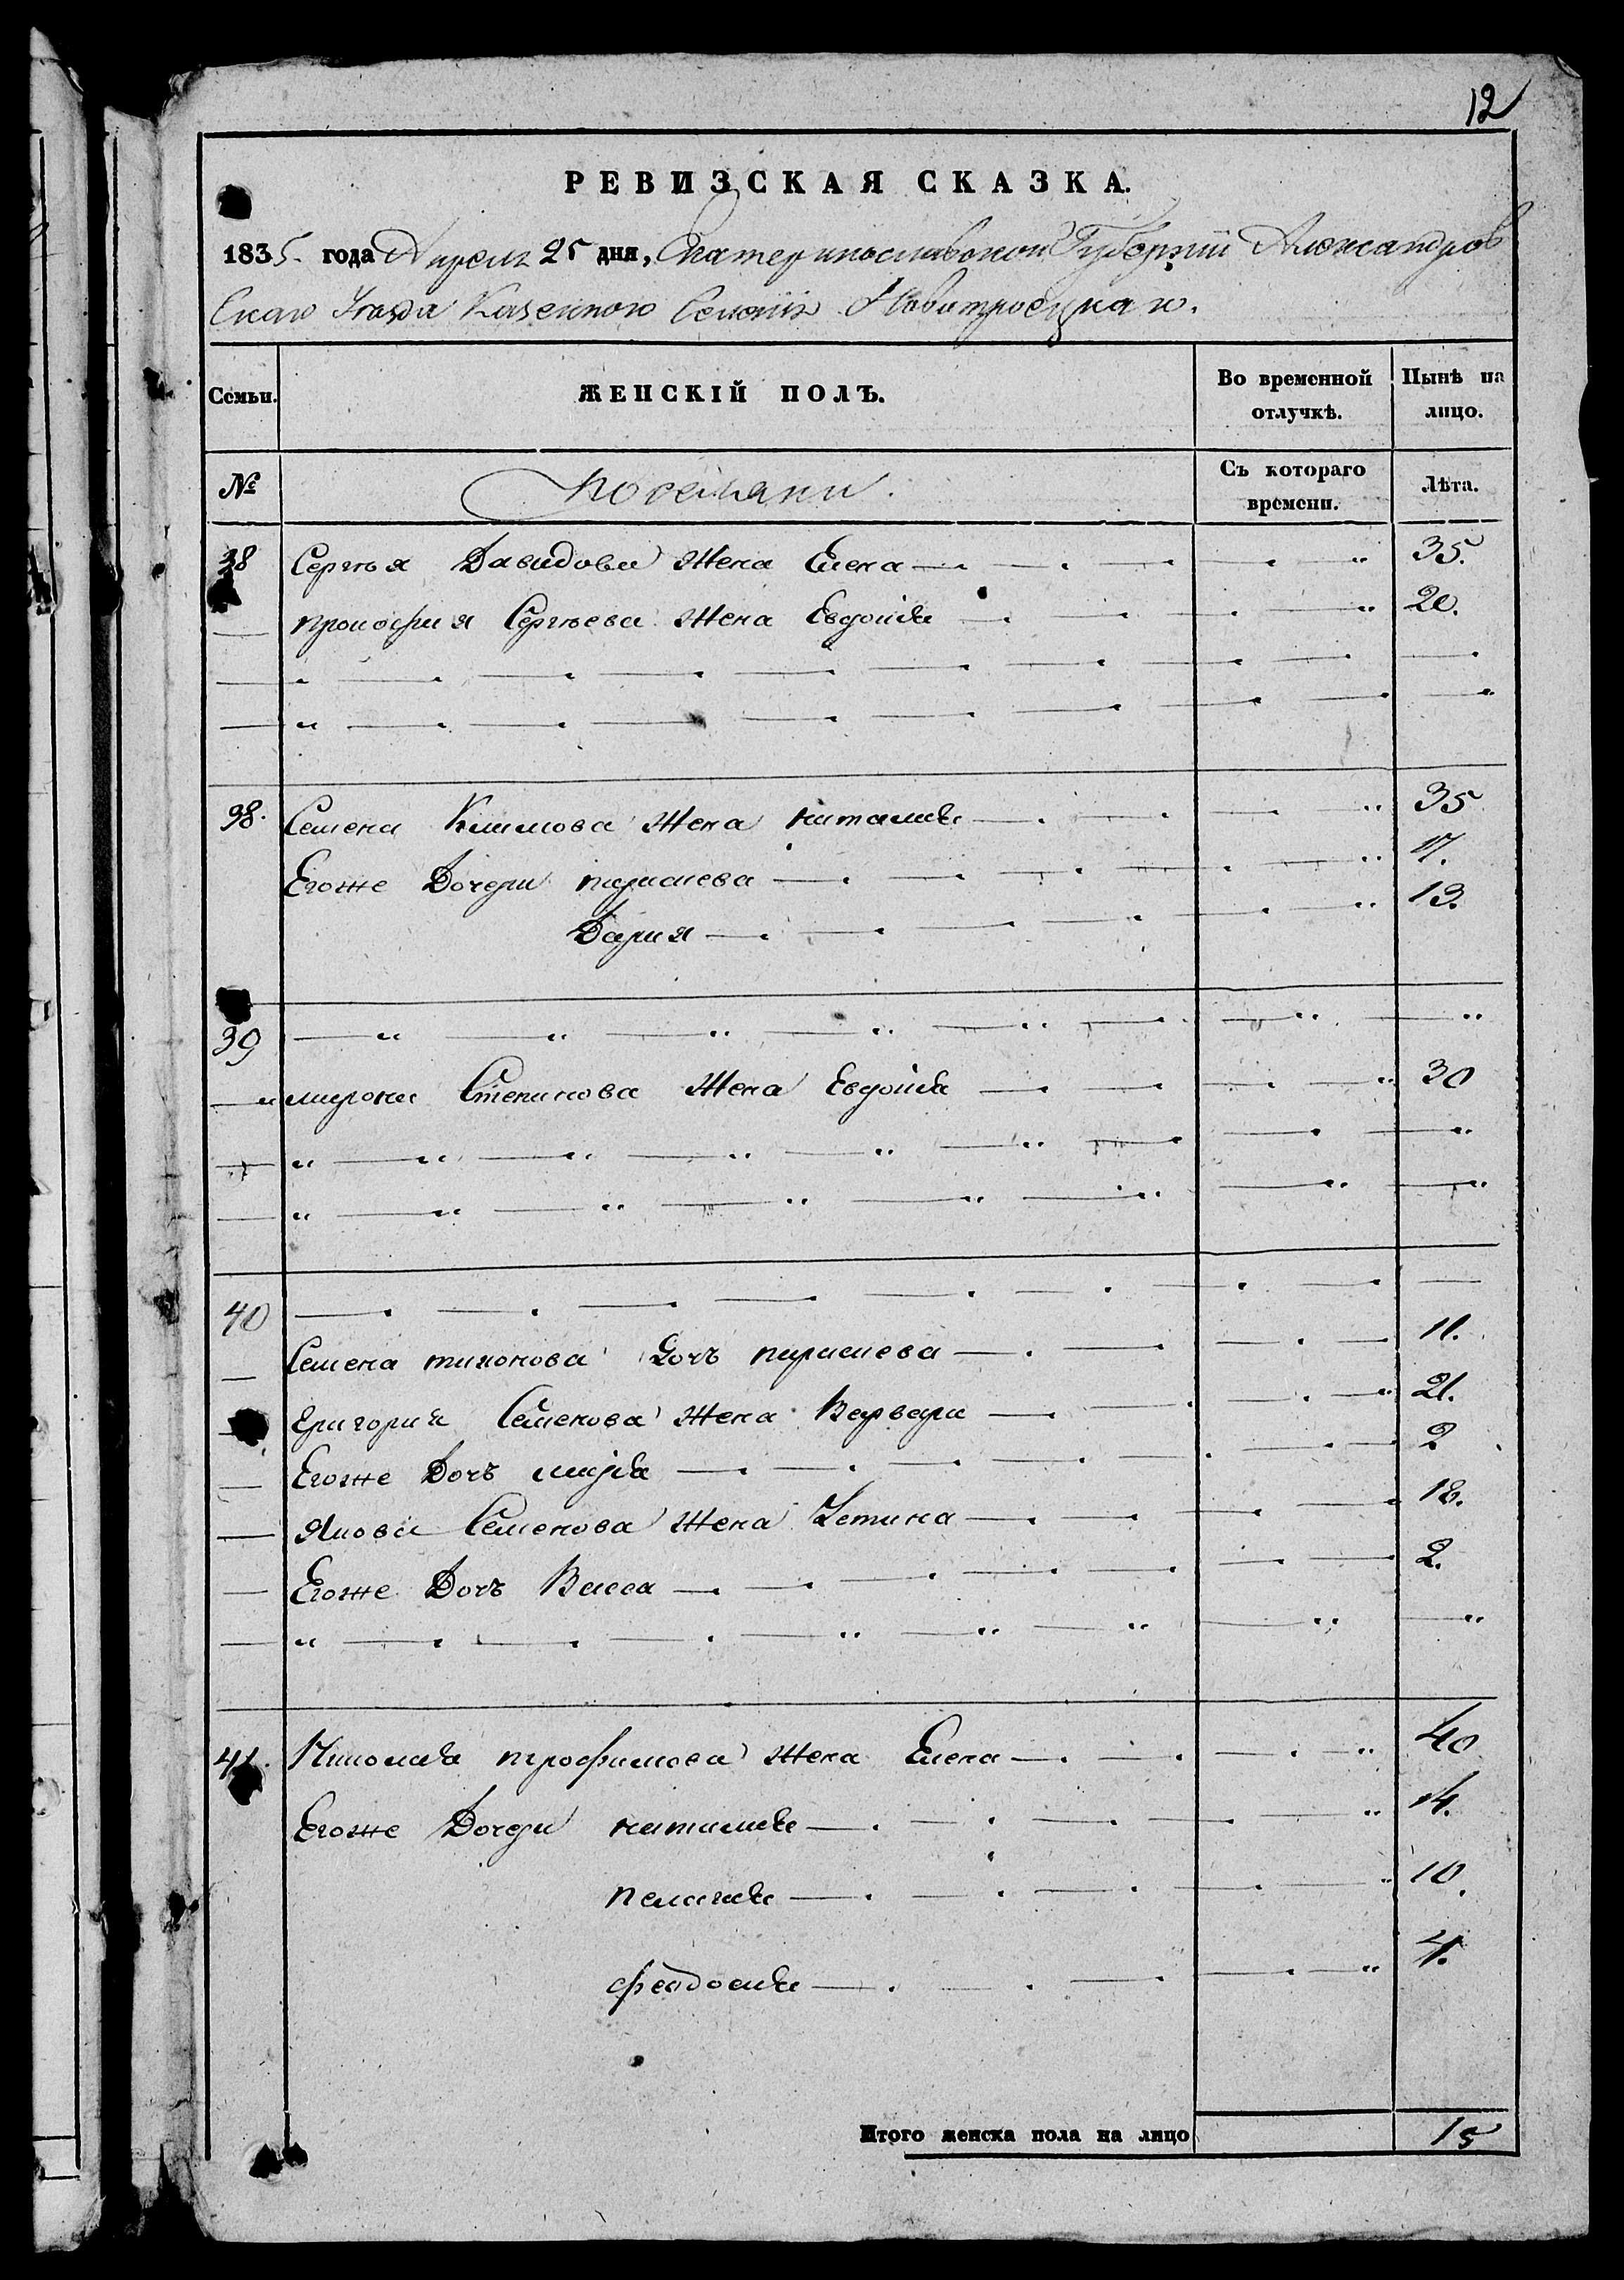 12
РЕВИЗСКАЯ СКАЗКА.
1835 года Апреля 25 дня, Екатеринославской Губерніи Александров
скаго Уезда Казенного Селенія Новотроецкаго.
Семьи. ЖЕНСКІЙ ПОЛЪ. Во временной отлучкѣ. Нынѣ на лицо.
№ поселяни. Съ котораго времени. Лѣта.
38 Сергѣя Давидова жена Елена 35.
прокофия Сергѣева жена Евдокия 20.
38. Семена Климова жена наталия 35
Егоже Дочери параскева 17.
Дария 13.
39
мирона Степанова жена Евдокия 30
40
Семена тихонова дочъ параскева 11.
григория Семенова жена Варвара 21.
Егоже Дочъ мария 2
якова Семенова жена Устина 18.
Егоже Дочъ Васса 2.
41. Николая трофимова жена Елена 40
Егоже Дочери наталия 14.
пелагия 10.
феодосия 4.
Итого женска пола на лицо 15